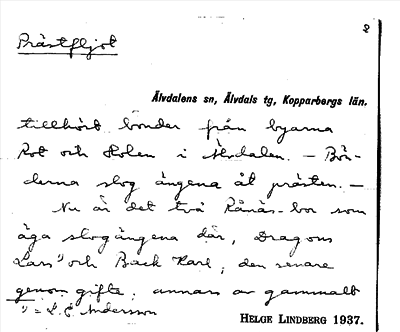 8
Prästfljot
Älvdalens sn, Älvdals tg, Kopparbergs län.
tillhört bönder från byarna
Rot och Holen i Älvdalen. – Bön-
derna slog ängena åt prästen. –
Nu är det två Rånäs-bor som
äga slogängena där, Dragons
Lars¹⁾ och Back Karl, den senare
genom gifte, annars av gammalt
¹⁾ = L. E. Andersson
HELGE LINDBERG 1937.